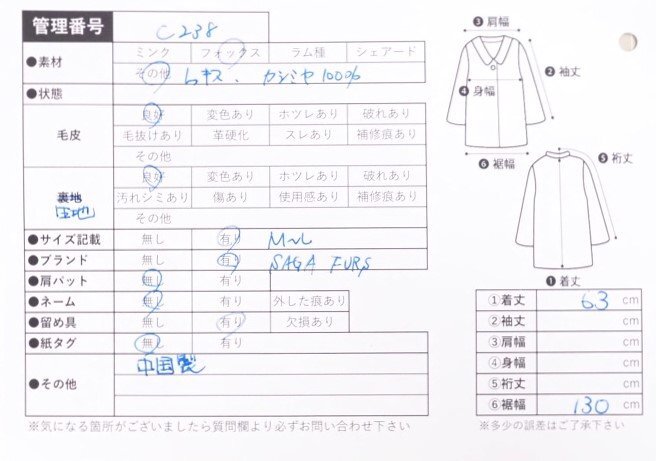 管理番号 C238
●素材 ミンク フォックス ラム種 シェアード
その他 レキス、カシミヤ100%
●状態
毛皮 良好 変色あり ホツレあり 破れあり
毛抜けあり 革硬化 スレあり 補修痕あり
その他
裏地 生地 良好 変色あり ホツレあり 破れあり
汚れシミあり 傷あり 使用感あり 補修痕あり
その他
●サイズ記載 無し 有り M〜L
●ブランド 無し 有り SAGA FURS
●肩パット 無し 有り
●ネーム 無し 有り 外した痕あり
●留め具 無し 有り 欠損あり
●紙タグ 無し 有り
●その他 中国製
※気になる箇所がございましたら質問欄より必ずお問い合わせ下さい
❸肩幅
❷袖丈
❹身幅
❻裾幅
❺裄丈
❶着丈
①着丈 63 cm
②袖丈 cm
③肩幅 cm
④身幅 cm
⑤裄丈 cm
⑥裾幅 130 cm
※多少の誤差はご了承下さい